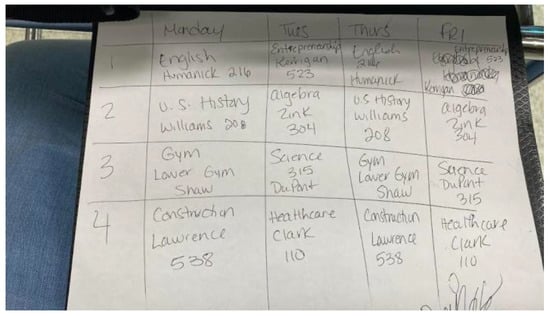 Monday Tues Thurs FRI
1
English
Humanick 216
Entrepreneurship
Kerrigan
523
English
216
Humanick
Entrepreneurship
523
Kerrigan
2
U.S. History
Williams 208
Algebra
Zink
304
U.S History
Williams
208
Algebra
Zink
304
3
Gym
Lower Gym
Shaw
Science
315
DuPont
Gym
Lower Gym
Shaw
Science
DuPont
315
4
Construction
Lawrence
538
Healthcare
Clark
110
Construction
Lawrence
538
Healthcare
Clark
110